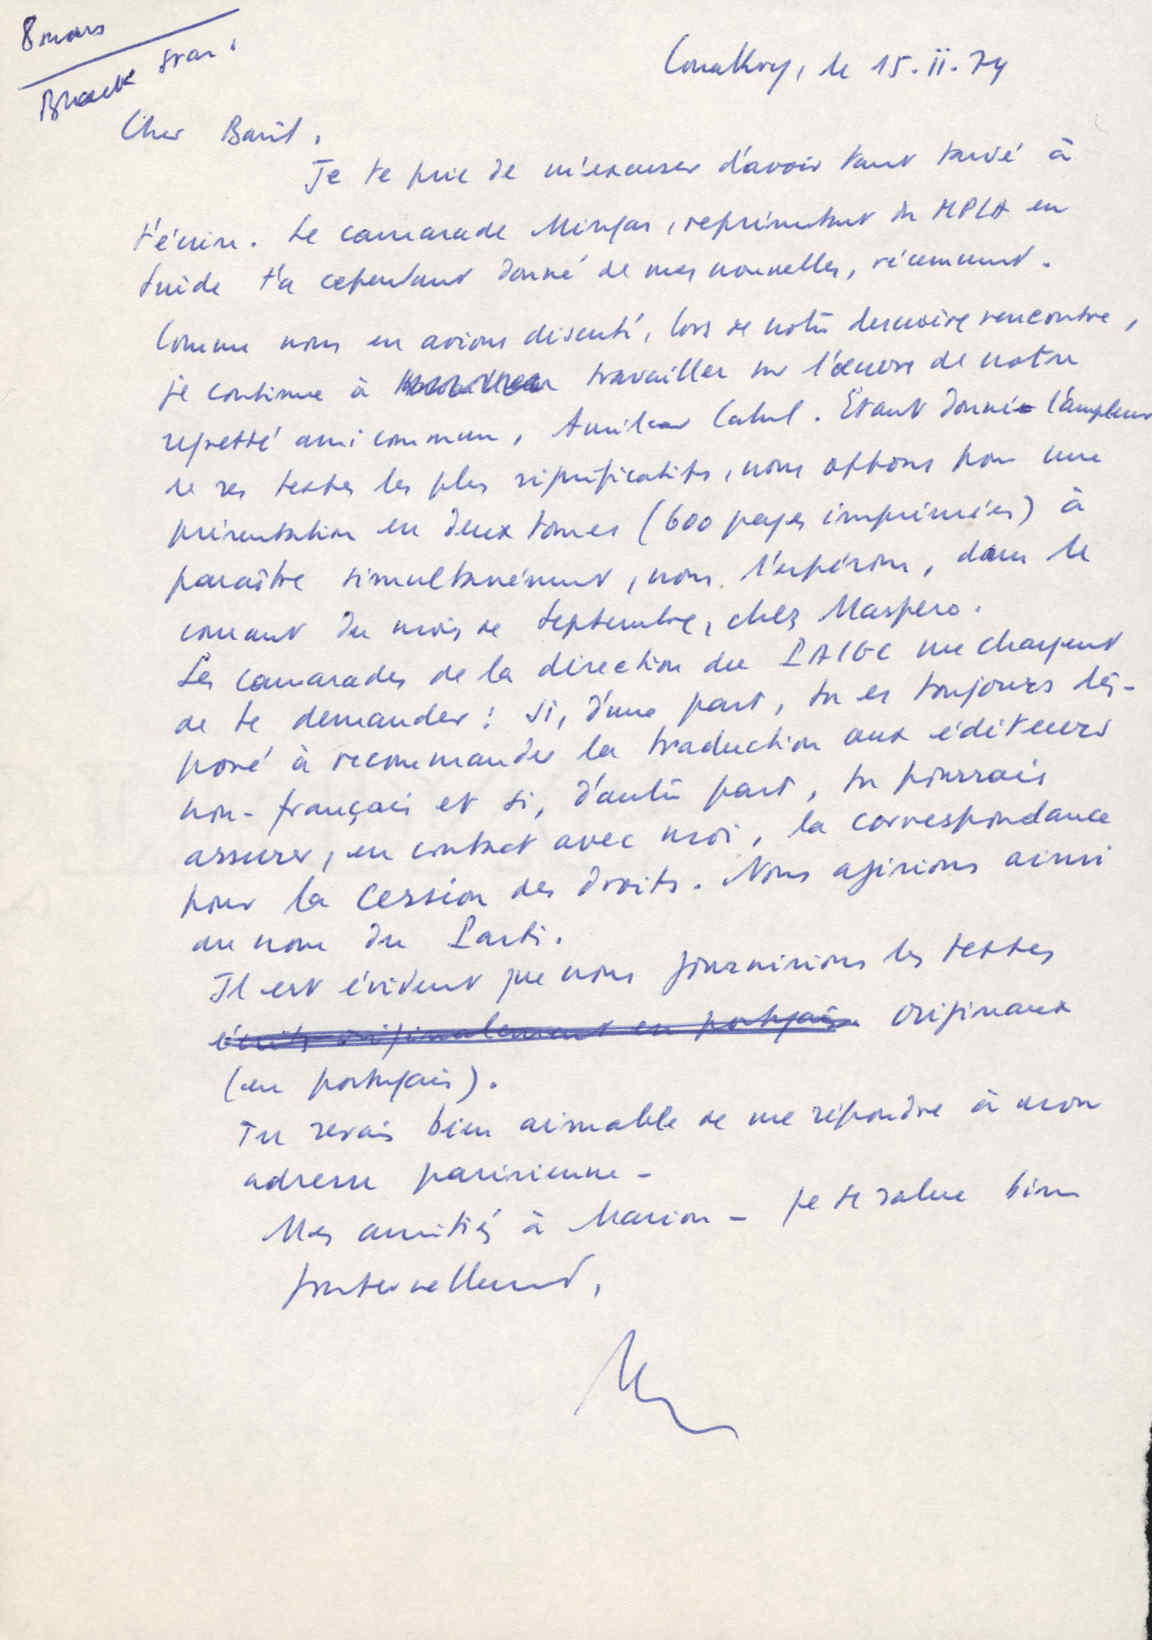 8 mars
Conakry, le 15.II.74
Cher Basil,
Je te prie de m'excuser d'avoir tant tardé à
t'écrire. Le camarade Mingas, représentant du MPLA en
Suède t'a cependant donné de mes nouvelles, récemment.
Comme nous en avions discuté, lors de notre dernière rencontre,
je continue à travailler sur l'œuvre de notre
regretté ami commun, Amilcar Cabral. Etant donné l'ampleur
de ses textes les plus significatifs, nous optons pour une
présentation en deux tomes (600 pages imprimées) à
paraître simultanément, nous l'espérons, dans le
courant du mois de Septembre, chez Maspero.
Les camarades de la direction du PAIGC me chargent
de te demander : si, d'une part, tu es toujours dis-
posé à recommander la traduction aux éditeurs
non-français et si, d'autre part, tu pourrais
assurer, en contact avec moi, la correspondance
pour la cession des droits. Nous agirions ainsi
au nom du Parti.
Il est évident que nous fournirions les textes
écrits originalement en portugais originaux
(en portugais).
Tu serais bien aimable de me répondre à mon
adresse parisienne -
Mes amitiés à Marion - je te salue bien
fraternellement,